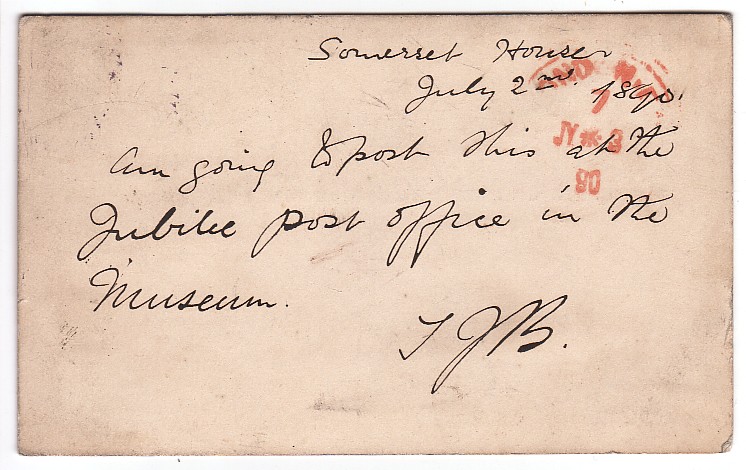 Somerset House
July 2nd 1890.
am going to post this at the
Jubilee post office in the
Museum.
T J B.
90